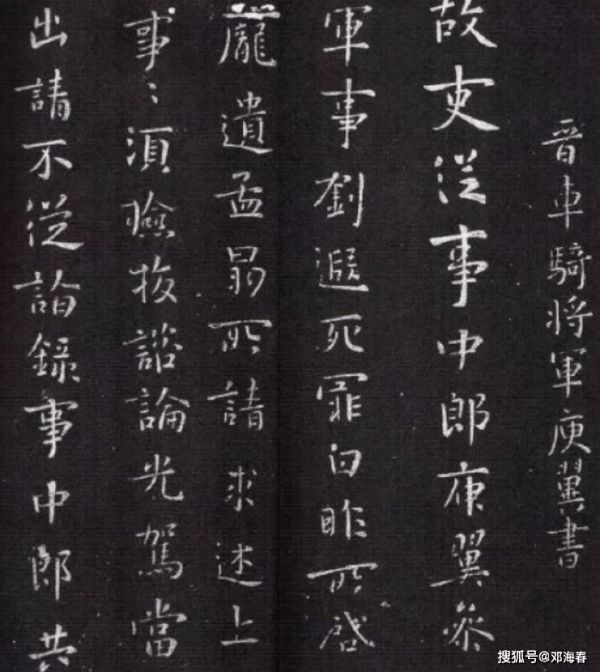 晋車騎将軍庾翼書
故吏従事中郎庾翼参
軍事劉遐死罪白昨所啓
龐遺孟昜所請求述上
事〻須檢校諮論光駕當
出請不従詣録事中郎共
搜狐号@邓海春